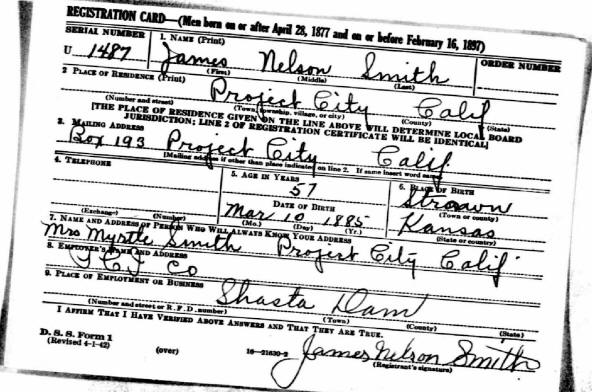 REGISTRATION CARD—(Men born on or after April 28, 1877 and on or before February 16, 1897)
SERIAL NUMBER 1. NAME (Print) ORDER NUMBER
U 1487 James Nelson Smith
(First) (Middle) (Last)
2 PLACE OF RESIDENCE (Print)
Project City Calif
(Number and street) (Town, township, village, or city) (County) (State)
[THE PLACE OF RESIDENCE GIVEN ON THE LINE ABOVE WILL DETERMINE LOCAL BOARD
JURISDICTION; LINE 2 OF REGISTRATION CERTIFICATE WILL BE IDENTICAL]
3. MAILING ADDRESS
Box 193 Project City Calif
[Mailing address if other than place indicated on line 2. If same insert word same]
4. TELEPHONE 5. AGE IN YEARS 6. PLACE OF BIRTH
57 Strawn
DATE OF BIRTH (Town or county)
Mar 10 1885 Kansas
(Exchange) (Number) (Mo.) (Day) (Yr.) (State or country)
7. NAME AND ADDRESS OF PERSON WHO WILL ALWAYS KNOW YOUR ADDRESS
Mrs Myrtle Smith Project City Calif
8. EMPLOYER'S NAME AND ADDRESS
Co
9. PLACE OF EMPLOYMENT OR BUSINESS
Shasta Dam
(Number and street or R. F. D. number) (Town) (County) (State)
I AFFIRM THAT I HAVE VERIFIED ABOVE ANSWERS AND THAT THEY ARE TRUE.
D. S. S. Form 1
(Revised 4-1-42) (over) 16—21630-2 James Nelson Smith
(Registrant's signature)